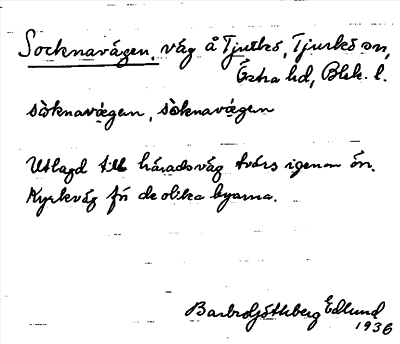 Socknavägen, väg å Tjurkö, Tjurkö sn,
Östra hd, Blek. l.
sòknavæ̀gen, sòknavæ̀gen
Utlagd till häradsväg tvärs igenom ön.
Kyrkväg fr de olika byarna.
Barbro Göthberg Edlund
1936